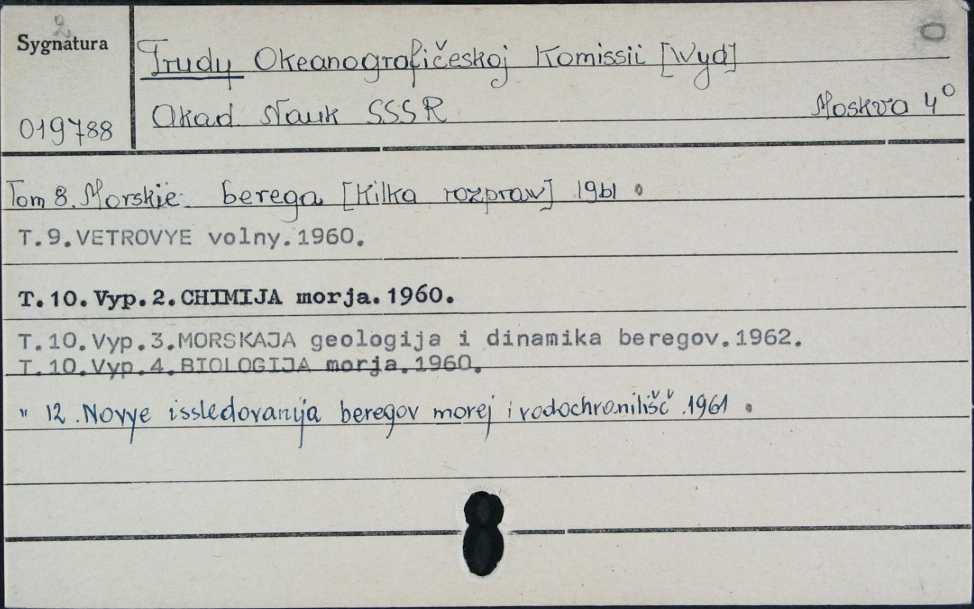 2
Sygnatura
019788
Trudy Okeanografičeskoj Komissii [Wyd]
Akad. Nauk SSSR Moskva 4°
Tom 8. Morskie berega [Kilka rozpraw] 1961.
T.9.VETROVYE volny.1960.
T.10.Vyp.2.CHIMIJA morja.1960.
T.10.Vyp.3.MORSKAJA geologija i dinamika beregov.1962.
T.10.Vyp.4.BIOLOGIJA morja.1960.
" 12. Novye issledovanija beregov morej i vodochranilišč. 1961.